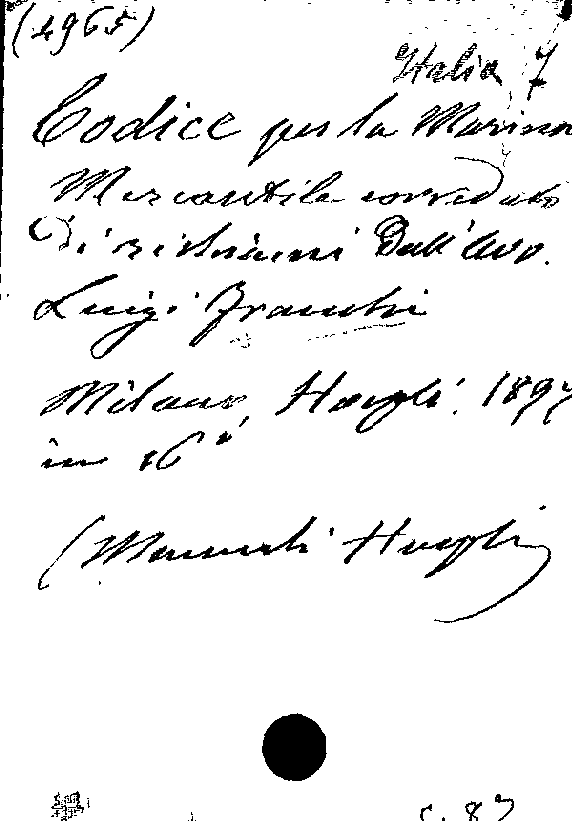 (4965)
Italia 7
Codice per la Marina
Mercantile corredato
di richiami dall'Avv.
Luigi Franchi
Milano, Hoepli. 1897
in 16°
(Manuali Hoepli)